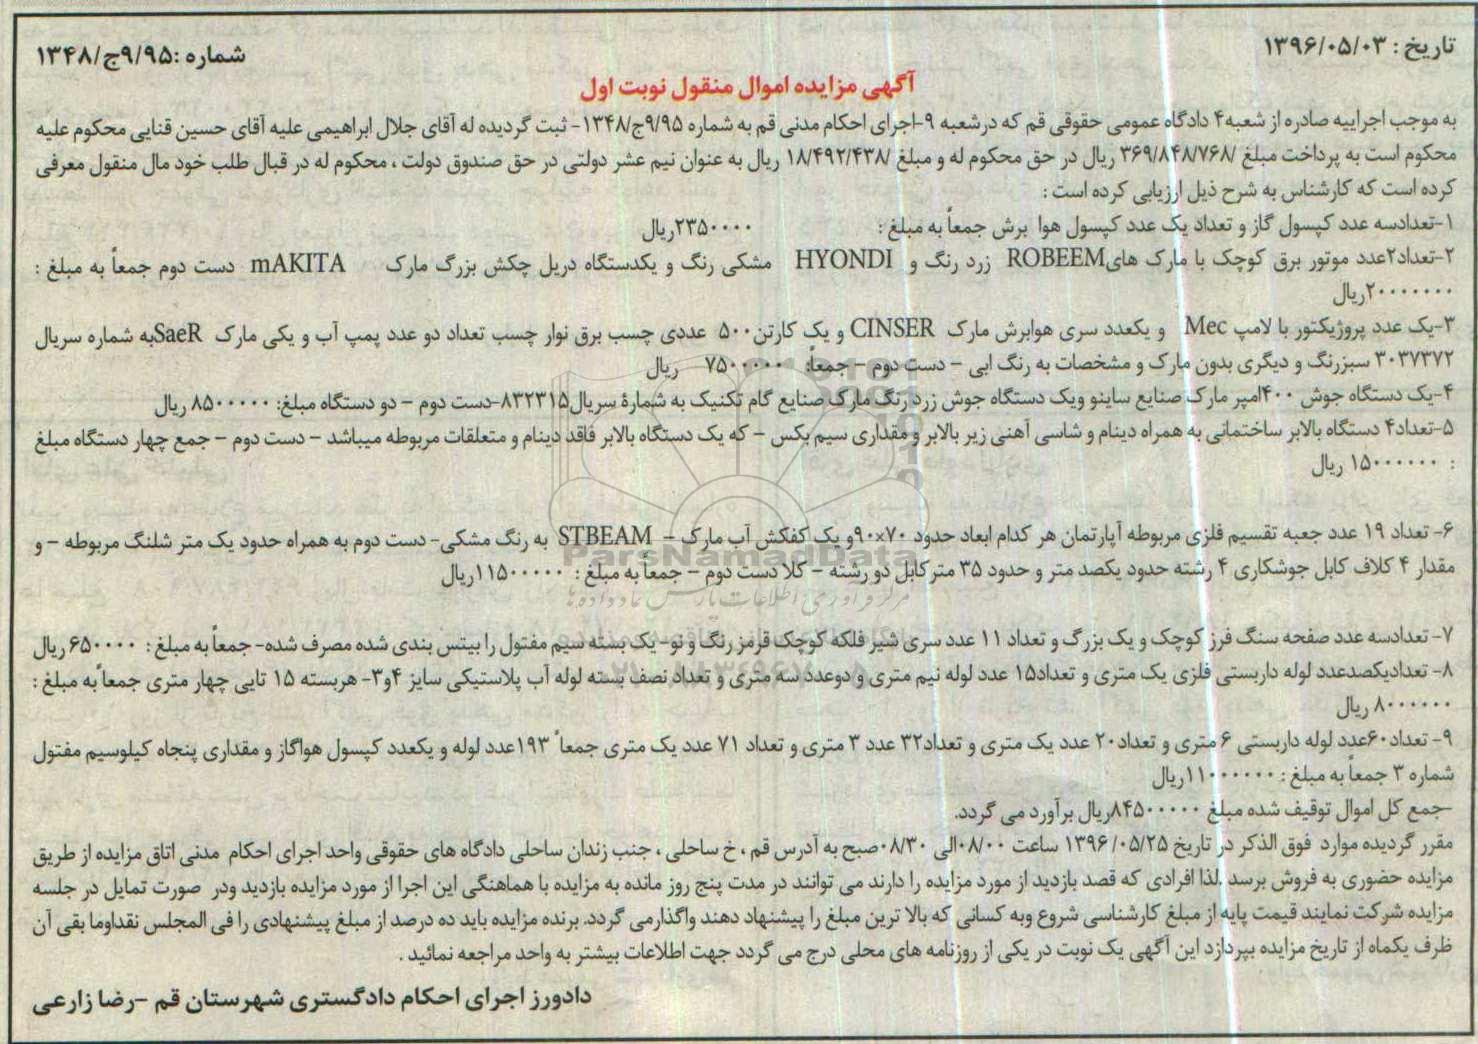 تاریخ : ۱۳۹۶/۰۵/۰۳
شماره :۹/۹۵ج/۱۳۴۸
آگهی مزایده اموال منقول نوبت اول
به موجب اجراییه صادره از شعبه۴ دادگاه عمومی حقوقی قم که درشعبه ۹-اجرای احکام مدنی قم به شماره ۹/۹۵ج/۱۳۴۸- ثبت گردیده له آقای جلال ابراهیمی علیه آقای حسین قنایی محکوم علیه
محکوم است به پرداخت مبلغ /۳۶۹/۸۴۸/۷۶۸ ریال در حق محکوم له و مبلغ /۱۸/۴۹۲/۴۳۸ ریال به عنوان نیم عشر دولتی در حق صندوق دولت ، محکوم له در قبال طلب خود مال منقول معرفی
کرده است که کارشناس به شرح ذیل ارزیابی کرده است :
۱-تعدادسه عدد کپسول گاز و تعداد یک عدد کپسول هوا برش جمعاً به مبلغ : ۲۳۵۰۰۰۰ریال
۲-تعداد۲عدد موتور برق کوچک با مارک هایROBEEM زرد رنگ و HYONDI مشکی رنگ و یکدستگاه دریل چکش بزرگ مارک mAKITA دست دوم جمعاً به مبلغ :
۲۰۰۰۰۰۰۰ریال
۳-یک عدد پروژیکتور با لامپ Mec و یکعدد سری هوابرش مارک CINSER و یک کارتن۵۰۰ عددی چسب برق نوار چسب تعداد دو عدد پمپ آب و یکی مارک SaeRبه شماره سریال
۳۰۳۷۳۷۲ سبزرنگ و دیگری بدون مارک و مشخصات به رنگ ابی – دست دوم – جمعاً: ۷۵۰۰۰۰۰ ریال
۴-یک دستگاه جوش ۴۰۰امپر مارک صنایع ساینو ویک دستگاه جوش زرد رنگ مارک صنایع گام تکنیک به شمارۀ سریال۸۳۲۳۱۵-دست دوم – دو دستگاه مبلغ: ۸۵۰۰۰۰۰ ریال
۵-تعداد۴ دستگاه بالابر ساختمانی به همراه دینام و شاسی آهنی زیر بالابر و مقداری سیم بکس – که یک دستگاه بالابر فاقد دینام و متعلقات مربوطه میباشد – دست دوم – جمع چهار دستگاه مبلغ
: ۱۵۰۰۰۰۰۰ ریال
۶- تعداد ۱۹ عدد جعبه تقسیم فلزی مربوطه آپارتمان هر کدام ابعاد حدود ۷۰×۹۰و یک کفکش آب مارک – STBEAM به رنگ مشکی- دست دوم به همراه حدود یک متر شلنگ مربوطه – و
مقدار ۴ کلاف کابل جوشکاری ۴ رشته حدود یکصد متر و حدود ۳۵ مترکابل دو رشته – کلا دست دوم – جمعاً به مبلغ : ۱۱۵۰۰۰۰۰ریال
ParsNamadData
مرکز فرآوری اطلاعات پارس نماد داده ها
۷- تعدادسه عدد صفحه سنگ فرز کوچک و یک بزرگ و تعداد ۱۱ عدد سری شیر فلکه کوچک قرمز رنگ و نو- یک بسته سیم مفتول را بیتس بندی شده مصرف شده- جمعاً به مبلغ : ۶۵۰۰۰۰ ریال
۸- تعدادیکصدعدد لوله داربستی فلزی یک متری و تعداد۱۵ عدد لوله نیم متری و دوعدد سه متری و تعداد نصف بسته لوله آب پلاستیکی سایز ۴و۳- هربسته ۱۵ تایی چهار متری جمعاً به مبلغ :
۸۰۰۰۰۰۰ ریال
۹- تعداد۶۰عدد لوله داربستی ۶ متری و تعداد۲۰ عدد یک متری و تعداد۳۲ عدد ۳ متری و تعداد ۷۱ عدد یک متری جمعاً ۱۹۳عدد لوله و یکعدد کپسول هواگاز و مقداری پنجاه کیلوسیم مفتول
شماره ۳ جمعاً به مبلغ : ۱۱۰۰۰۰۰۰ریال
-جمع کل اموال توقیف شده مبلغ ۸۴۵۰۰۰۰۰ریال برآورد می گردد.
مقرر گردیده موارد فوق الذکر در تاریخ ۱۳۹۶/۰۵/۲۵ ساعت ۰۸/۰۰الی ۰۸/۳۰صبح به آدرس قم ، خ ساحلی ، جنب زندان ساحلی دادگاه های حقوقی واحد اجرای احکام مدنی اتاق مزایده از طریق
مزایده حضوری به فروش برسد .لذا افرادی که قصد بازدید از مورد مزایده را دارند می توانند در مدت پنج روز مانده به مزایده با هماهنگی این اجرا از مورد مزایده بازدید ودر صورت تمایل در جلسه
مزایده شرکت نمایند قیمت پایه از مبلغ کارشناسی شروع وبه کسانی که بالا ترین مبلغ را پیشنهاد دهند واگذارمی گردد. برنده مزایده باید ده درصد از مبلغ پیشنهادی را فی المجلس نقداوما بقی آن
ظرف یکماه از تاریخ مزایده بپردازد این آگهی یک نوبت در یکی از روزنامه های محلی درج می گردد جهت اطلاعات بیشتر به واحد مراجعه نمائید .
دادورز اجرای احکام دادگستری شهرستان قم –رضا زارعی